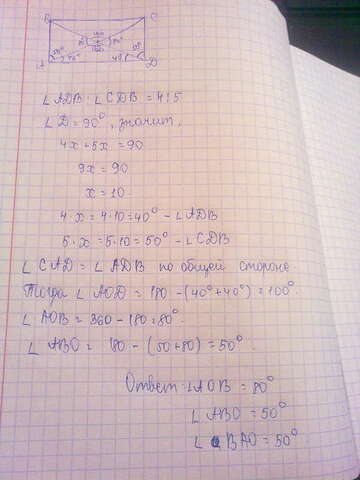 B C
A D
∠ADB : ∠CDB = 4:5
∠D = 90°, значит,
4x + 5x = 90
9x = 90
x = 10
4·x = 4·10 = 40° – ∠ADB
5·x = 5·10 = 50° – ∠CDB
∠CAD = ∠ADB по общей стороне
Тогда ∠AOD = 180 – (40°+40°) = 100°
∠AOB = 360 – 180 = 80°
∠ABO = 180 – (50+80) = 50°
Ответ: ∠AOB = 80°
∠ABO = 50°
∠BAO = 50°